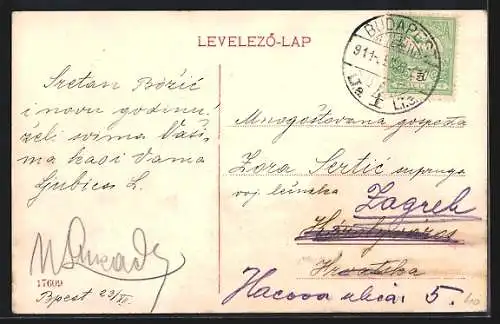 LEVELEZŐ-LAP
BUDAPEST
911
Sretan Božić
i novu godinu!
želi svima Vaši-
ma kao i Vama
Ljubica L.
17609
Bpest 23/XII.
Mnogoštovana gospođa
Zora Sertić supruga
voj
Zagreb
Hrvatska
Hacova ulica. 5.